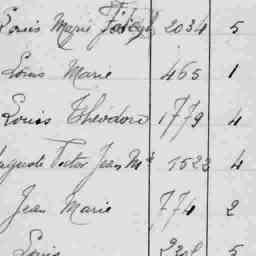 Louis Marie Joseph 2034 5
Louis Marie 465 1
Louis Théodore 1779 4
Auguste Victor Jean Mie 1522 4
Jean Marie 774 2
Louis 2208 5